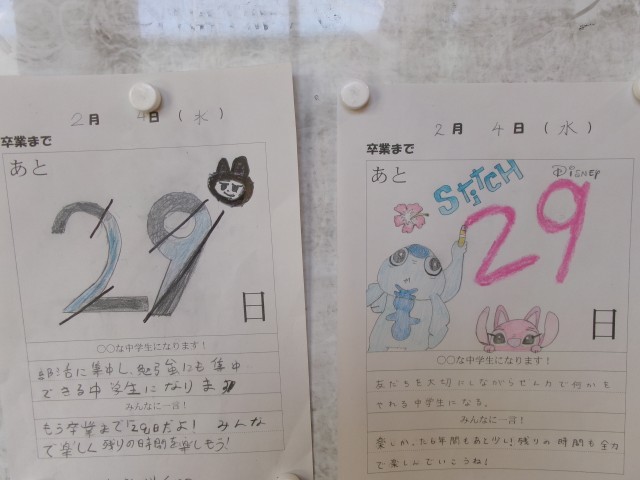 2月 4日 (水)
卒業まで
あと
29
日
○○な中学生になります!
部活に集中し、勉強にも集中
できる中学生になります
みんなに一言!
もう卒業まで29日だよ! みんな
で楽しく残りの時間を楽しもう!
2月 4日 (水)
卒業まで
あと
STITCH
DiSNEP
29
日
○○な中学生になります!
友だちを大切にしながらぜん力で何かを
やれる中学生になる。
みんなに一言!
楽しかった6年間もあと少し!残りの時間も全力
で楽しんでいこうね!